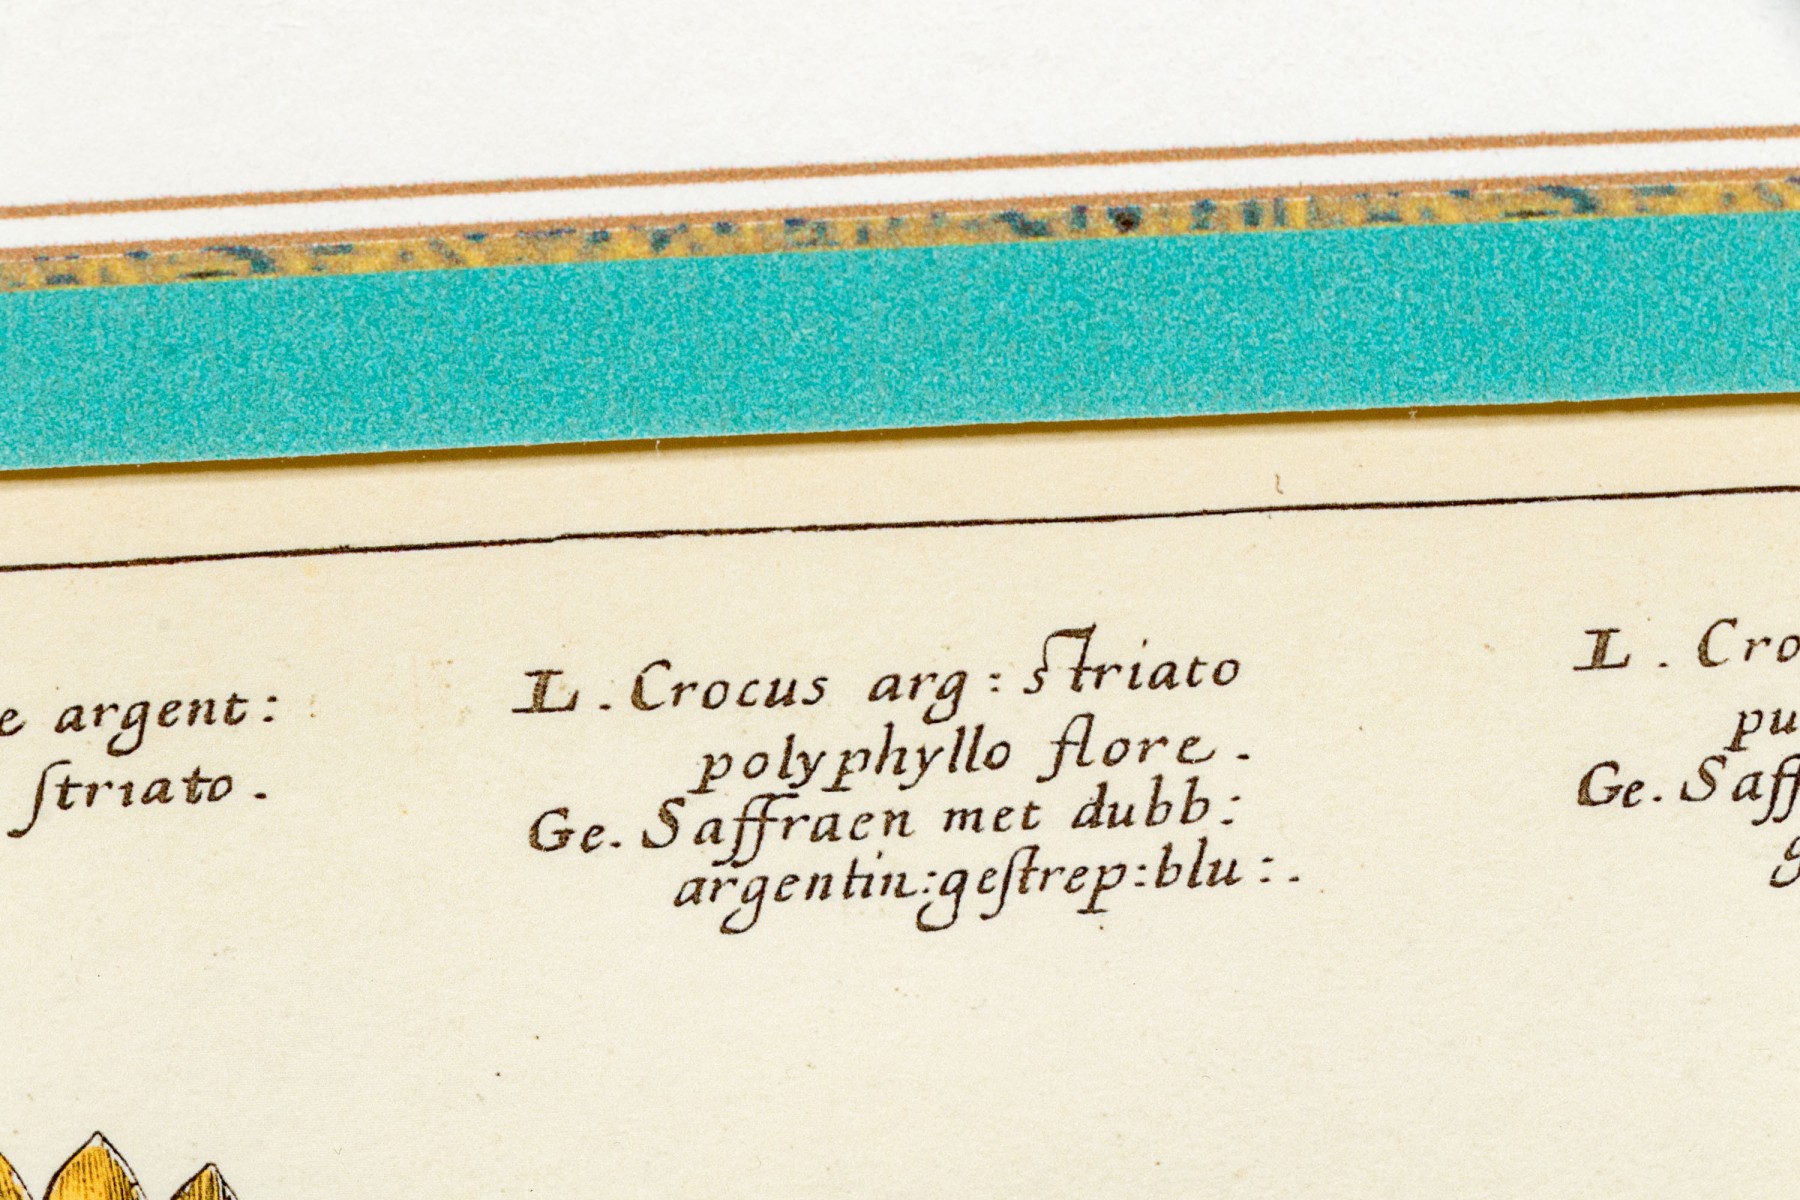 e argent:
ſtriato.
L. Crocus arg: striato
polyphyllo flore.
Ge. Saffraen met dubb:
argentin:geſtrep:blu:.
L. Cro
pu
Ge. Saff
g